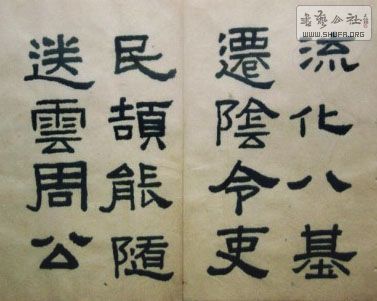 流化八基
遷陰令吏
民頡能隨
送雲周公
WWW.SHUFA.ORG